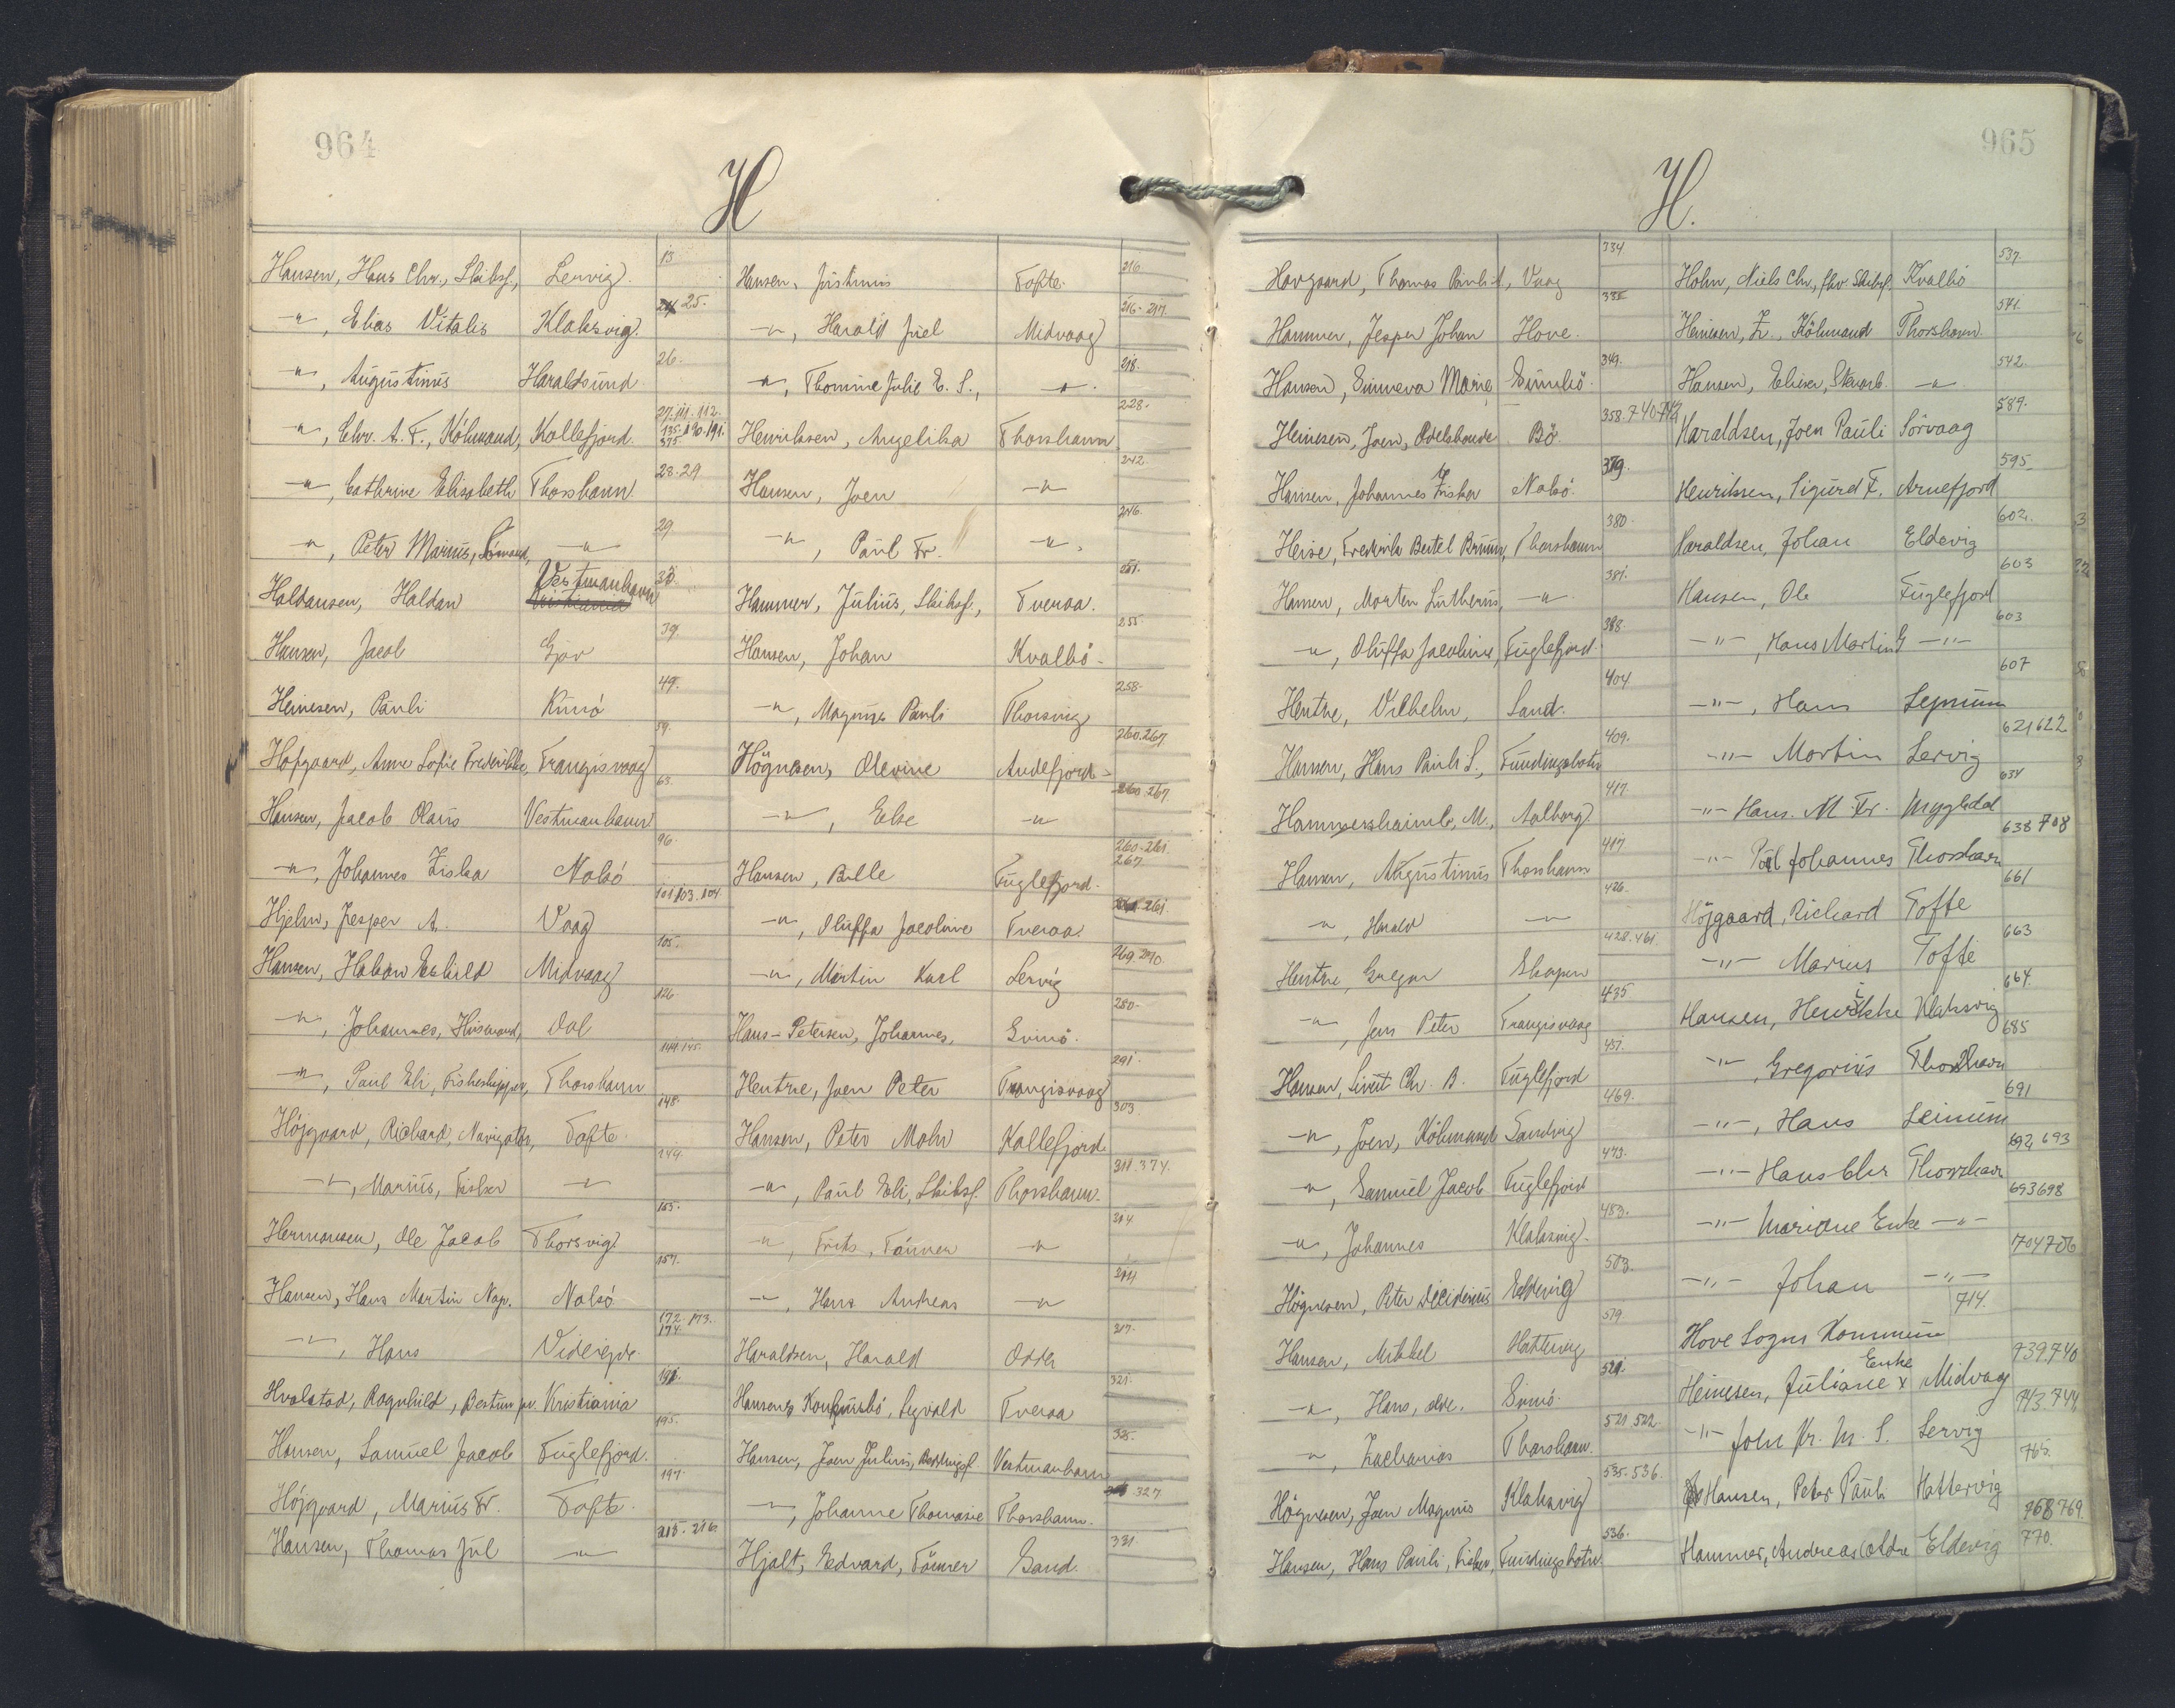 964
H
Hansen, Hans Chr., Skibsf., Lervig. 13
—"—, Elias Vitalis Klaksvig. 25.
—"—, Augustinus Haraldsund 26.
—"—, Chr. A. F., Köbmand, Kollefjord. 27. 111. 112. 135. 190. 191. 375
—"—, Cathrine Elisabeth Thorshavn 28. 29
—"—, Peter Marius, —"— 29
Haldansen, Haldan Vestmanhavn
Hansen, Jacob Gjov 39.
Heinesen, Pauli Kunö 49.
Hofgaard, Anne Sofie Frederikke, Frangisvaag 59.
Hansen, Jacob Olaus Vestmanhavn 63.
—"—, Johannes Ziska Nolsö 96.
Hjelm, Jesper A. Vaag 101. 103. 104.
Hansen, Hakon Eskild Midvaag 105.
—"—, Johannes, Husmand, Dal 126
—"—, Paul Eli, Fiskeskipper, Thorshavn 144. 145.
Höjgaard, Richard, Navigatör, Tofte 148.
—"—, Marius, Fisker —"— 149.
Hermansen, Ole Jacob Thorsvig. 155.
Hansen, Hans Martin Nap. Nolsö 157.
—"—, Hans Viderejde 172. 173. 174.
Hvalstad, Ragnhild, Kristiania 191.
Hansen, Samuel Jacob Fuglefjord. 195.
Höjgaard, Marius Fr. Tofte. 197.
Hansen, Thomas Jul —"— 215. 216.
Hansen, Justinus Tofte. 216
—"—, Harald Juel Midvaag 216. 217.
—"—, Thomine Julie E. S., —"—. 218.
Henriksen, Angelika Thorshavn 228.
Hansen, Joen —"— 242.
—"—, Paul Fr. —"—. 246.
Hammer, Julius, Skibsf., Tveraa. 251.
Hansen, Johan Kvalbö. 255.
—"—, Magnus Pauli Thorsvig 258.
Högnesen, Olevine Andefjord 260. 267
—"—, Else —"— 260. 267.
Hansen, Balle Fuglefjord. 260. 261. 267
—"—, Oluffa Jacoline Tveraa. 261.
—"—, Martin Karl Lervig 269. 270.
Hans-Petersen, Johannes, Svinö. 280.
Hentze, Joen Peter Trangisvaag 291.
Hansen, Peter Mohr Kollefjord 303
—"—, Paul Eli, Skibsf. Thorshavn. 311. 374.
—"—, Frits, Tömrer —"— 314
—"—, Hans Andreas —"— 314
Haraldsen, Harald 317.
Hansen, Sigvald Tveraa 321.
Hansen, Joen Julius, Vestmanhavn 325.
—"—, Johanne Thomasie Thorshavn. 327
Hjalt, Edvard, Tömrer Sand. 331.
965
H.
Havgaard, Thomas Pauli A., Vaag 334
Hammer, Jesper Johan Hove. 335
Hansen, Sunneva Marie Svinö. 349.
Heinesen, Joen, Odelsbonde Bö. 358. 740. 742
Hansen, Johannes Zisker Nolsö. 379.
Heise, Frederik Bertel Bruun, Thorshavn 380.
Hansen, Morten Lutherus, —"— 381.
—"—, Oluffa Jacoline, Fuglefjord. 388.
Hentze, Vilhelm, Sand. 404
Hansen, Hans Pauli S., Fundingsbotn 409.
Hammershaimb, M., Aalborg 417.
Hansen, Augustinus Thorshavn 417.
—"—, Harald —"— 426.
Hentze, Gregor Skopen 428. 461.
—"—, Jens Peter Trangisvaag 435
Hansen, Sivert Chr. B. Fuglefjord 457.
—"—, Joen, Köbmand Sandvig 469.
—"—, Samuel Jacob Fuglefjord 473.
—"—, Johannes Klaksvig. 483.
Högnesen, Peter Eldevig 503.
Hansen, Mikkel Hattervig 519
—"—, Hans, Svinö. 521.
—"—, Zacharias Thorshavn. 521. 522.
Högnesen, Joen Magnus Klaksvig 535. 536.
Hansen, Hans Pauli, Fisker, Fundingsbotn. 536.
Hohn, Niels Chr., fhv. Skibsf. Kvalbö 537.
Heinesen, Z., Köbmand Thorshavn 541.
Hansen, Elieser, —"— 542.
Haraldsen, Joen Pauli Sörvaag 589.
Henriksen, Sigurd F. Arnefjord 595.
Haraldsen, Johan Eldevig 602.
Hansen, Ole Fuglefjord 603
—"—, Hans Martin G —"— 603
—"—, Hans 607
—"— Morten Lervig 621 622
—"— Hans. M. Fr. Mygledal 634
—"— Poul Johannes Thorshavn 638 708
Höjgaard, Richard Tofte 661
—"— Marius Tofte 663
Hansen, Henrikke Klaksvig 664.
—"—, Gregorius Thorshavn 685
—"—, Hans Leinum 691
—"— Hans Chr Thorshavn 692 693
—"— Mariane Enke —"— 693 698
—"— Johan —"— 704 706
Hove Sogns Kommune 714.
Heinesen, Juliane Enke Midvag 739. 740
—"— John Kr. M. S. Lervig 743. 744
Hansen, Peter Pauli Hattervig 765.
Hammer, Andreas Eldevig 768 769. 770.